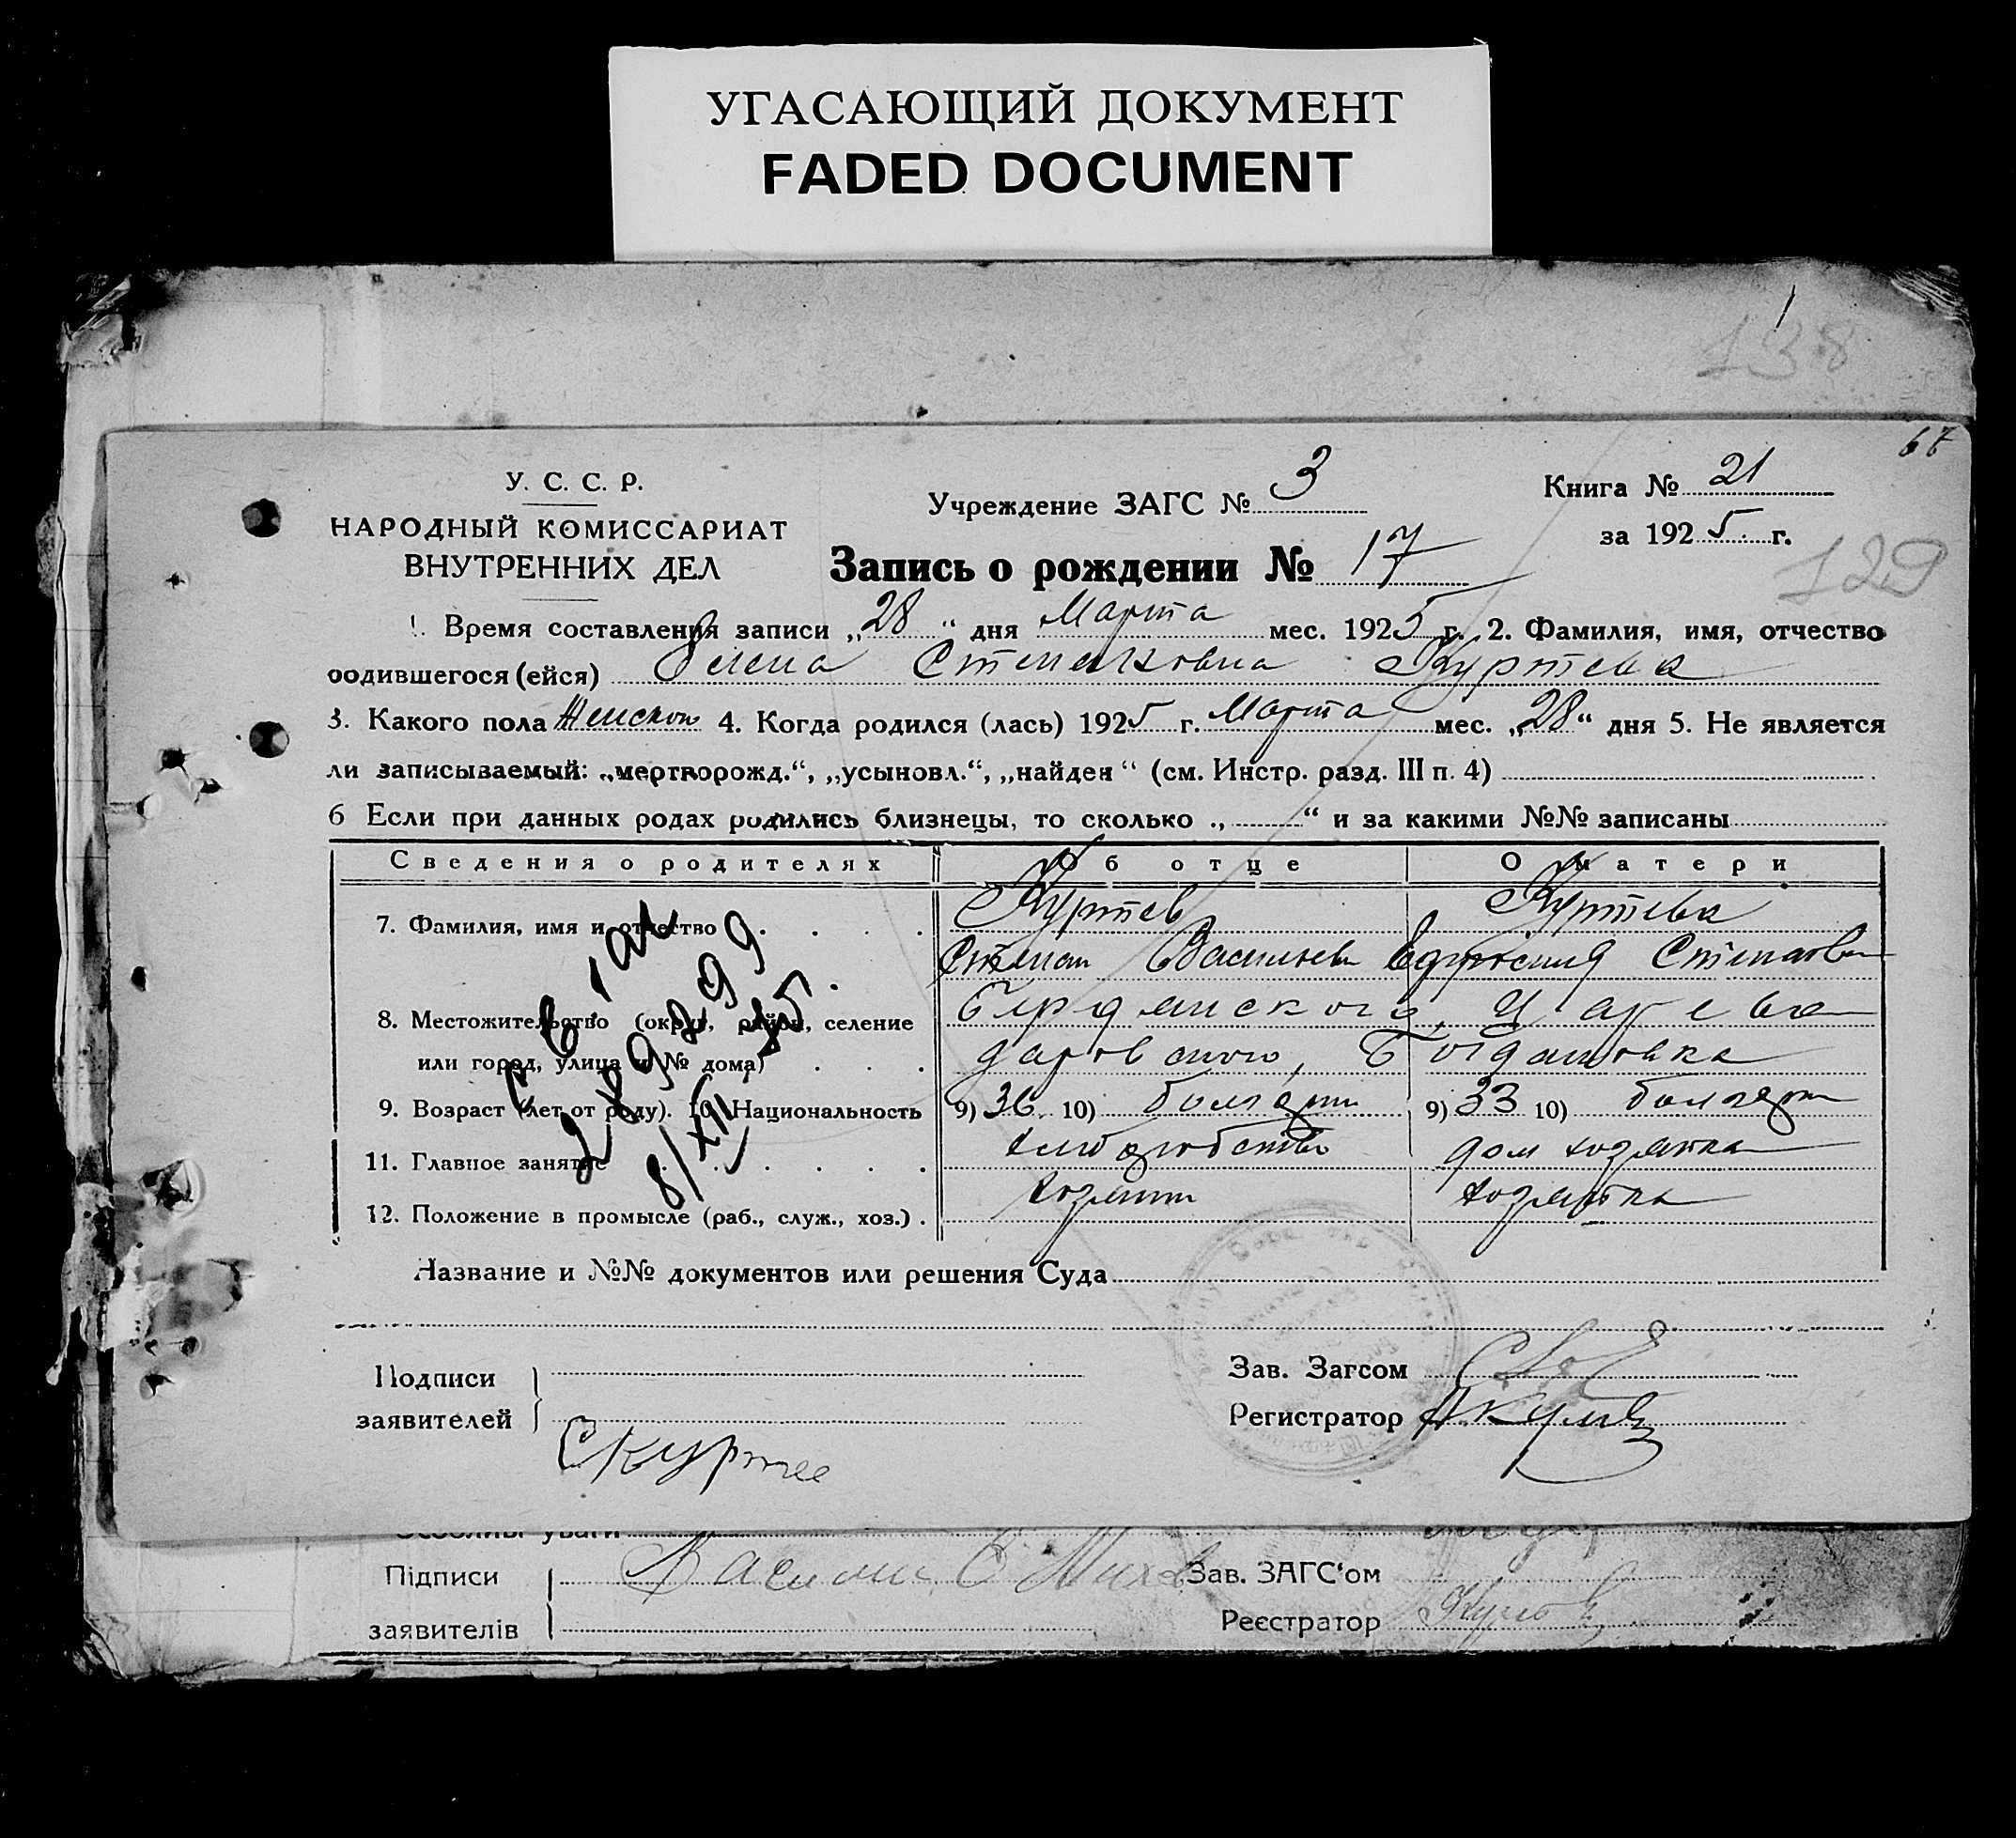 УГАСАЮЩИЙ ДОКУМЕНТ
FADED DOCUMENT
138
67
У. С. С. Р.
НАРОДНЫЙ КОМИССАРИАТ
ВНУТРЕННИХ ДЕЛ
Учреждение ЗАГС № 3
Книга № 21
за 1925. г.
129
Запись о рождении № 17
1. Время составления записи „28“ дня Марта мес. 1925 г. 2. Фамилия, имя, отчество
родившегося (ейся) Елена Степановна Куртева
3. Какого пола Женского 4. Когда родился (лась) 1925 г. Марта мес. „28“ дня 5. Не является
ли записываемый: „мертворожд.“, „усыновл.“, „найден“ (см. Инстр. разд. III п. 4)
6 Если при данных родах родились близнецы, то сколько „ “ и за какими №№ записаны
Сведения о родителях Об отце О матери
7. Фамилия, имя и отчество Куртев Куртева
Степан Васильев Ефросиния Степанов
8. Местожительство (округ, район, селение Бердянского, Царево
или город, улица и № дома) даровского, Богдановка
9. Возраст (лет от роду). 10. Национальность 9) 36 10) болгарин 9) 33 10) болгарк
11. Главное занятие хлеборобство дом хозяйка
12. Положение в промысле (раб., служ., хоз.) хозяин хозяйка
8/XII 45
Название и №№ документов или решения Суда
Подписи
заявителей
СКуртев
Зав. Загсом
Регистратор
Особливі уваги
Підписи
заявителів
Зав. ЗАГС‘ом
Реєстратор